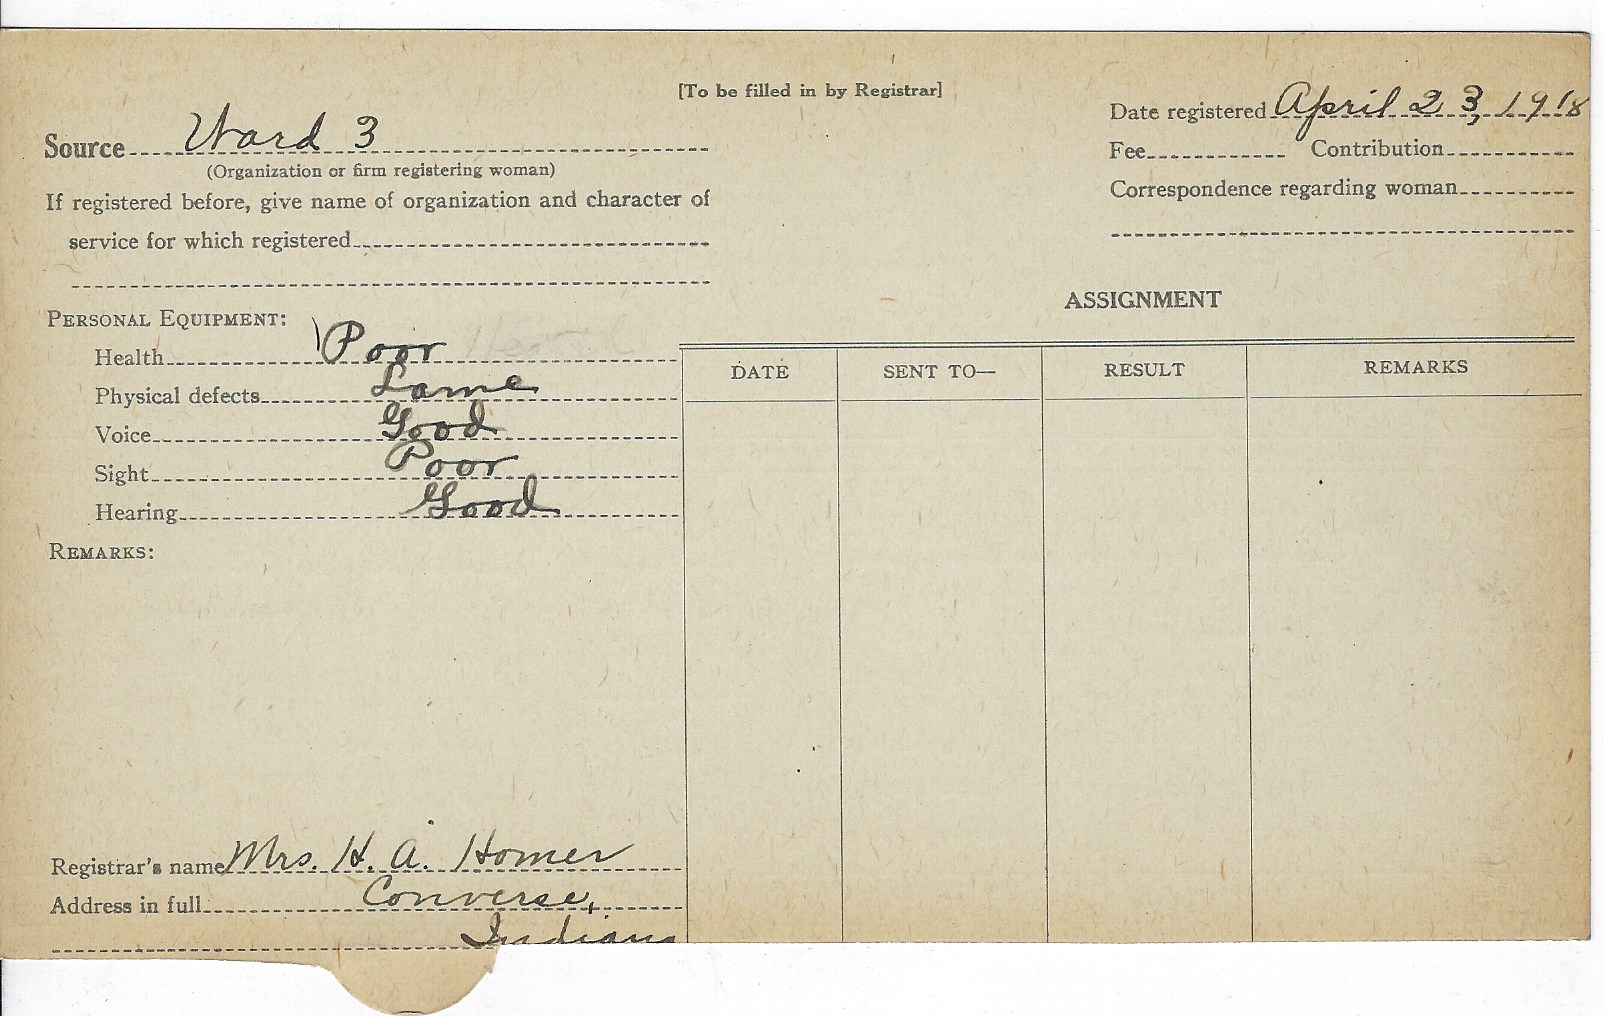 [To be filled in by Registrar]
Date registered April 23, 1918
Source Ward 3
(Organization or firm registering woman)
Fee Contribution
If registered before, give name of organization and character of
service for which registered
Correspondence regarding woman
ASSIGNMENT
PERSONAL EQUIPMENT:
Health Poor
Physical defects Lame
Voice Good
Sight Poor
Hearing Good
REMARKS:
DATE SENT TO— RESULT REMARKS
Registrar's name Mrs. H. A. Homer
Address in full Converse,
Indiana